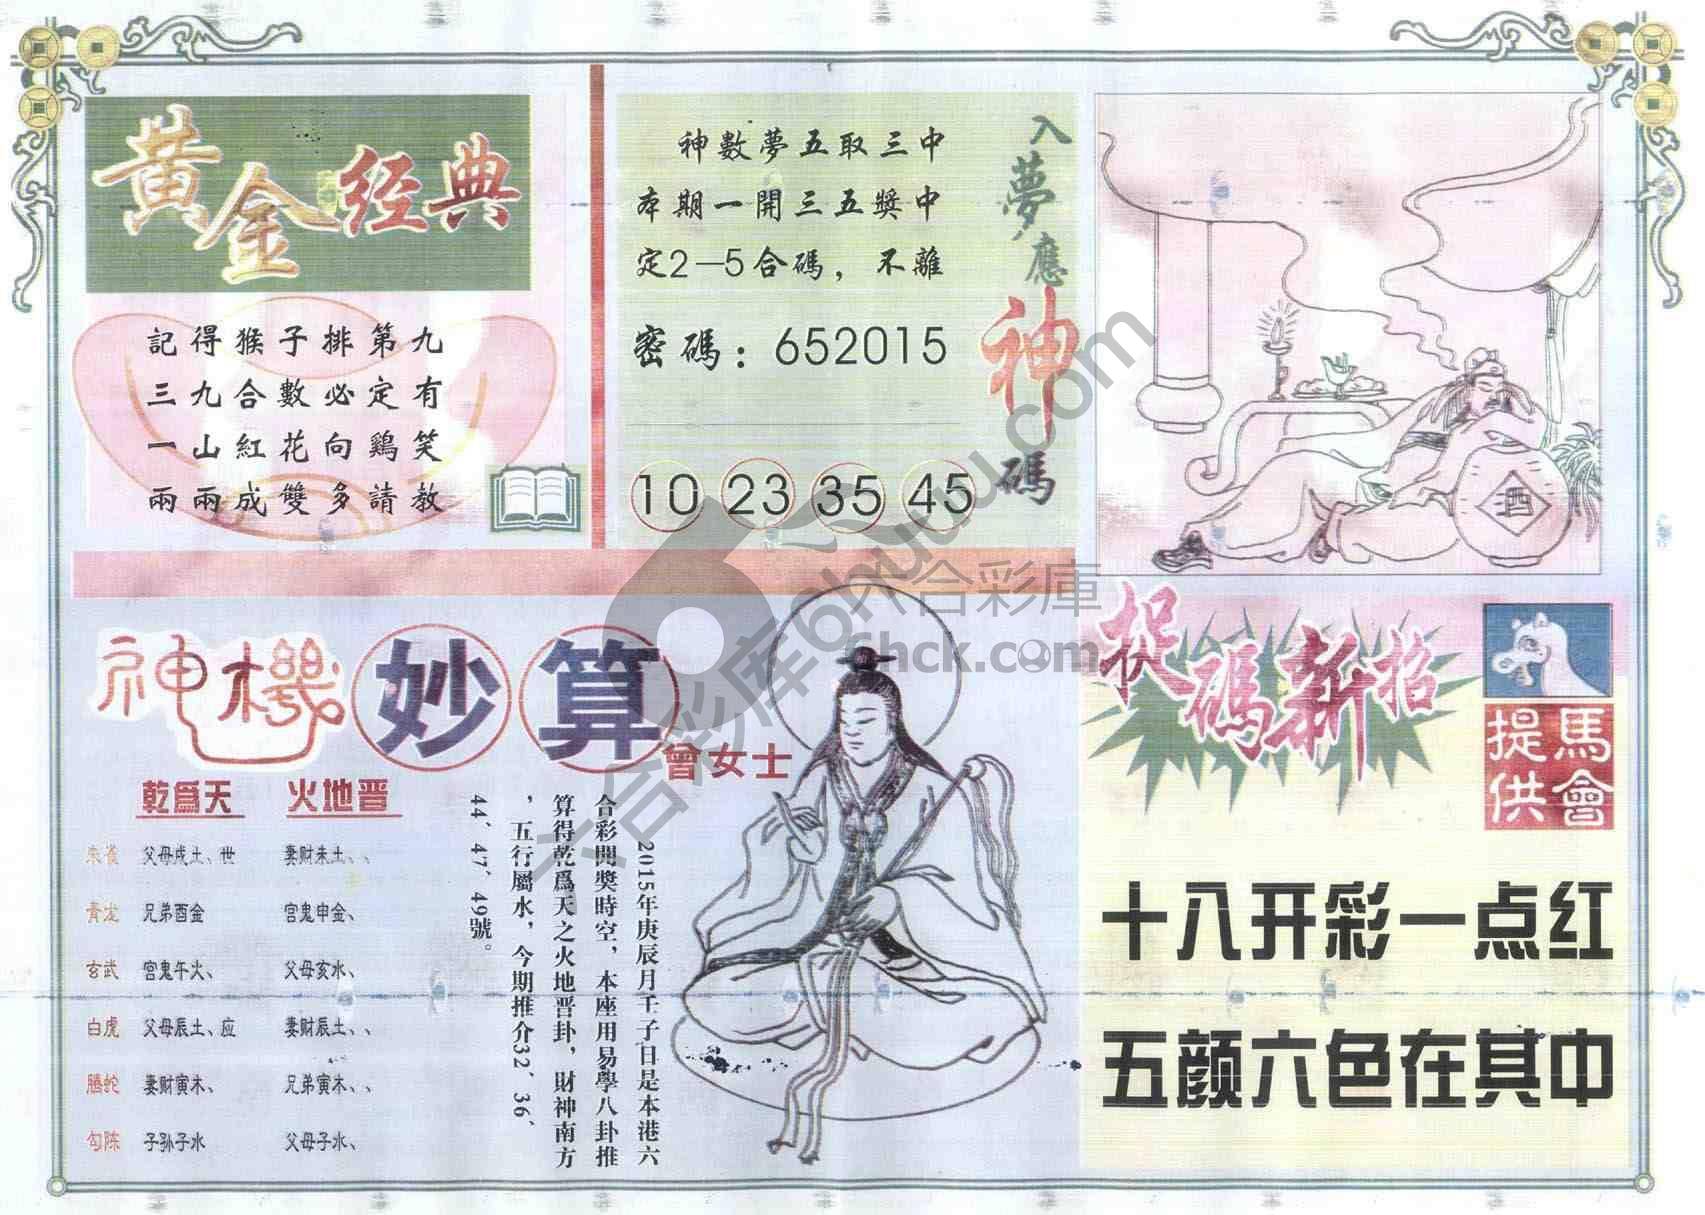 黃金经典
記得猴子排第九
三九合數必定有
一山紅花向鷄笑
兩兩成雙多請教
入夢應神碼
神數夢五取三中
本期一開三五獎中
定2—5合碼，不離
密碼：652015
10 23 35 45
酒
神機妙算
曾女士
乾爲天 火地晋
朱雀 父母戌土、世 妻财未土、、
青龙 兄弟酉金 官鬼申金、
玄武 官鬼午火、 父母亥水、
白虎 父母辰土、应 妻财辰土、、
腾蛇 妻财寅木、 兄弟寅木、、
勾陈 子孙子水 父母子水、
2015年庚辰月壬子日是本港六
合彩開獎時空，本座用易學八卦推
算得乾爲天之火地晋卦，財神南方
，五行屬水，今期推介32、36、
44、47、49號。
捉碼新招
馬會
提供
十八开彩一点红
五颜六色在其中
六合彩库 6huku.com
六合彩庫
6hck.com